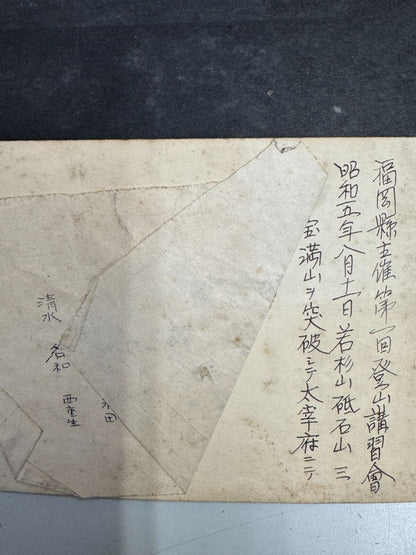 福岡縣主催第一回登山講習會
昭和五年八月十一日若杉山砥石山三
宝満山ヲ突破シテ太宰府ニテ
清水
名和
西重生